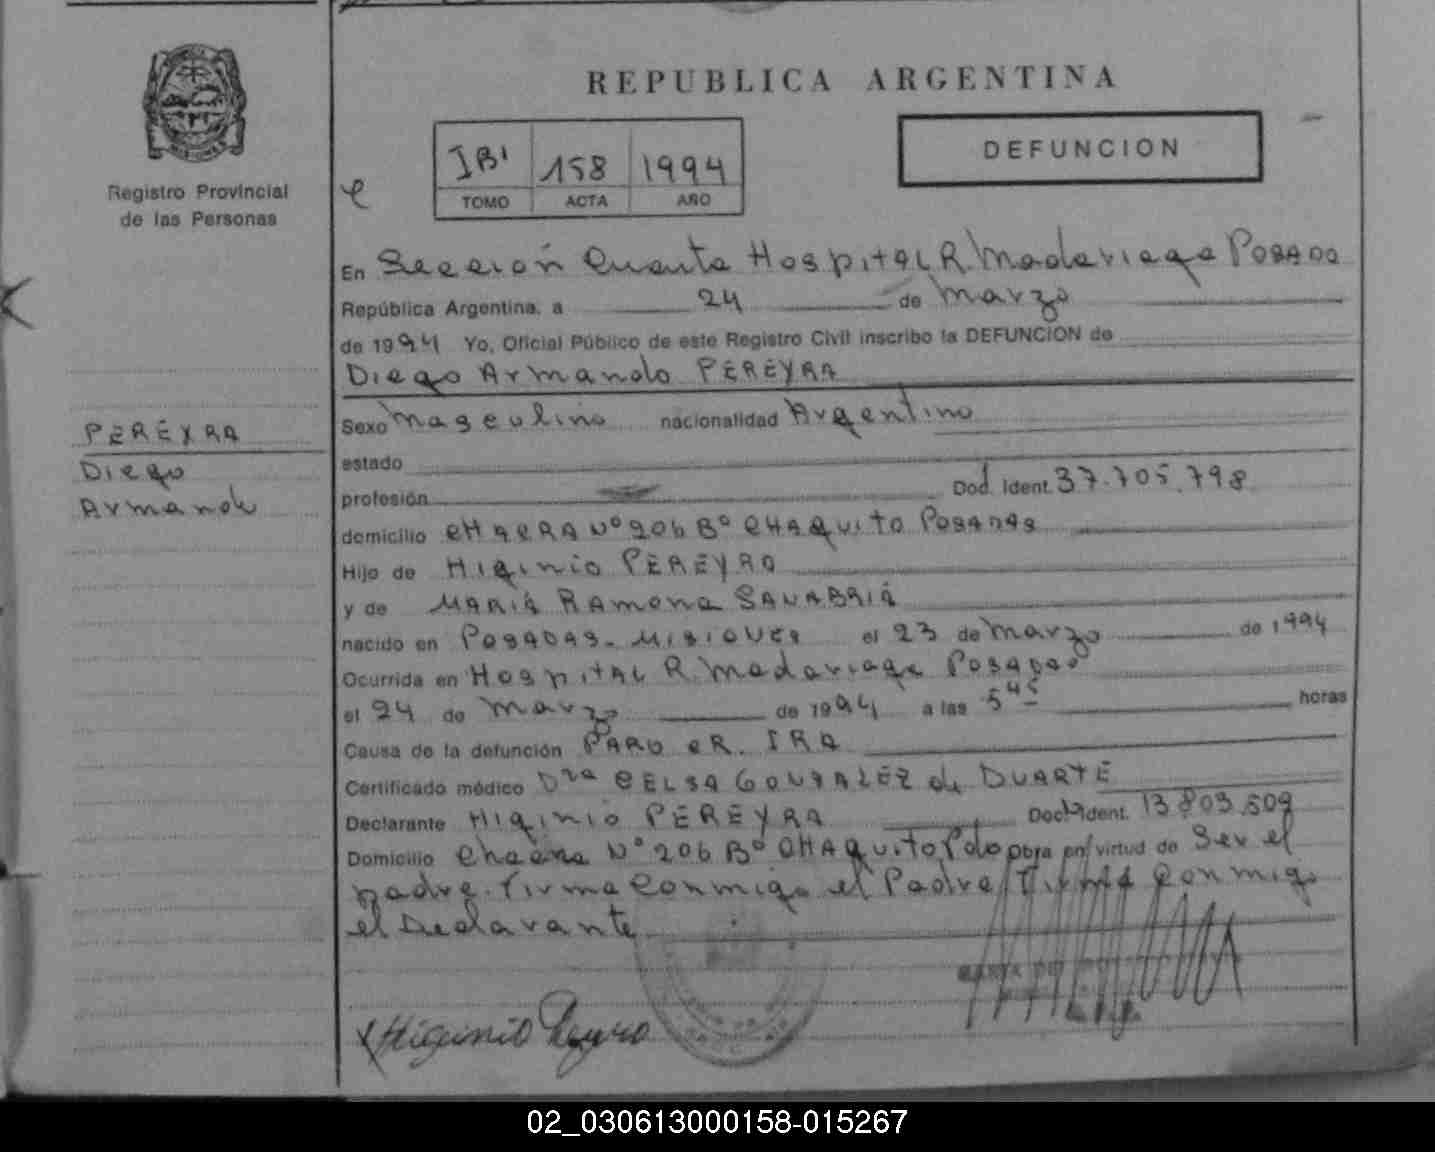 REPUBLICA ARGENTINA
Registro Provincial
de las Personas
IB' 158 1994
TOMO ACTA AÑO
DEFUNCION
En Sección Cuarta Hospital R. Madariaga Posadas
República Argentina, a 24 de Marzo
de 1994 Yo, Oficial Público de este Registro Civil inscribo la DEFUNCION de
Diego Armando PEREYRA
PEREYRA
Diego
Armando
Sexo Masculino nacionalidad Argentino
estado
profesión Docl. Ident. 37.705.798
domicilio CHACRA Nº 206 Bº CHAQUITO POSADAS
Hijo de Higinio PEREYRA
y de MARIA RAMONA SANABRIA
nacido en POSADAS - MISIONES el 23 de Marzo de 1994
Ocurrida en Hospital R. Madariaga Posadas
el 24 de Marzo de 1994 a las 5 45 horas
Causa de la defunción PARO CR. IRA
Certificado médico Dra CELSA GONZALEZ de DUARTE
Declarante Higinio PEREYRA Doct Ident. 13.803.509
Domicilio Chacra Nº 206 Bº CHAQUITO Pdas obra en virtud de Ser el
padre. Firma Conmigo el Padre/ Firma Conmigo
el Declarante
Higinio
02_030613000158-015267